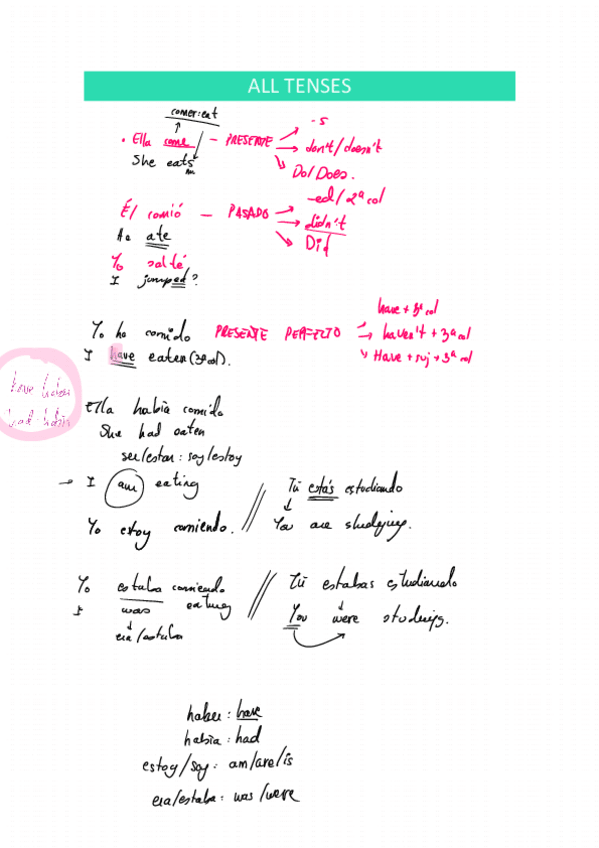 ALL TENSES
comer: eat
• Ella come — PRESENTE
-s
don't/doesn't
Do/Does.
She eats
Él comió — PASADO
-ed/2ª col
didn't
Did
He ate
Yo salté
I jumped?
Yo he comido PRESENTE PERFECTO
have + 3ª col
haven't + 3ª col
Have + suj + 3ª col
I have eaten (3ª col).
have haber
had había
Ella había comido
She had eaten
ser/estar: soy/estoy
→ I am eating // Tú estás estudiando
Yo estoy comiendo. You are studying.
Yo estaba comiendo // Tú estabas estudiando
I was eating
You were studying.
era/estaba
haber: have
había: had
estoy/soy: am/are/is
era/estaba: was/were